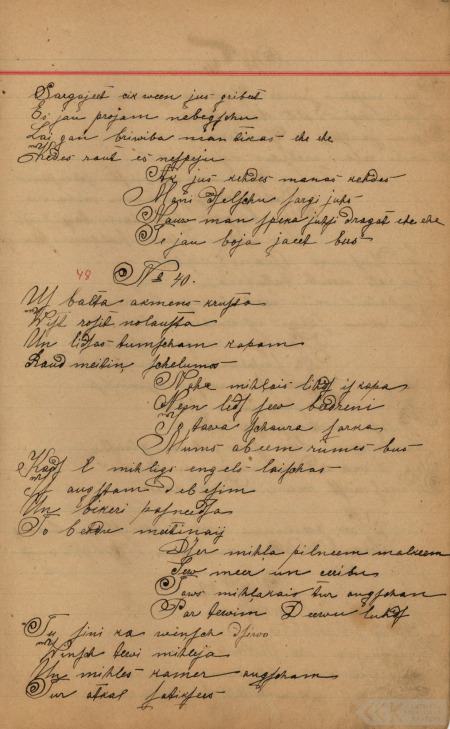 Sargajeet cik ween jus gribeet
Es jau projam nebegschu
Lai gan briwiba man tikas ehe ehe
Kehdes raut es nespeju
Ak jus kehdes manas kehdes
Mani dselschu sargi juhs
Nauw man speka juhs dragat ehe ehe
Te jau boja jaeet bus
48 № 40.
Us balta akmens krusta
Wist rosit nolausta
Un lihsas tumscham kapam
Raud meitin schelumos
Nahz mihlais lihds is kapa
Nem lihds sew beedreni
Jo tawa schaura sarka
Mums abeem rumes bus
Kahds mihligs engels laischas
No augstam debesim
Un bikeri pasneedsa
To behdu meitinai
Dser mihla pilneem malkeem
Sew meer un ceribu
Taws mihlakais tur augscham
Par tewim Deewu luhds
Tu sini ka winsch dsiwo
Winsch tewi mihleja
Un mihles kamer augscham
Tur atkal satiksees